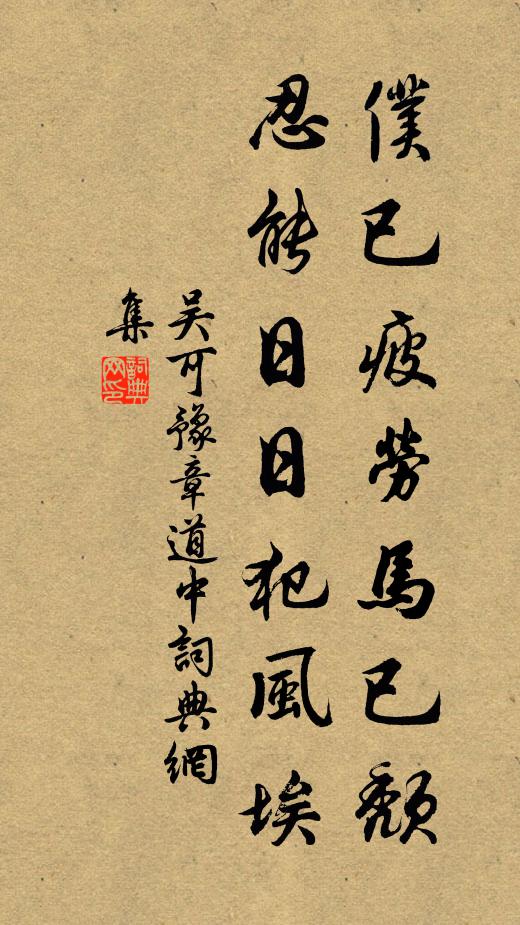 僕已疲勞馬已頹
忍能日日犯風埃
吳可豫章道中詞典網
集
詞典
网印